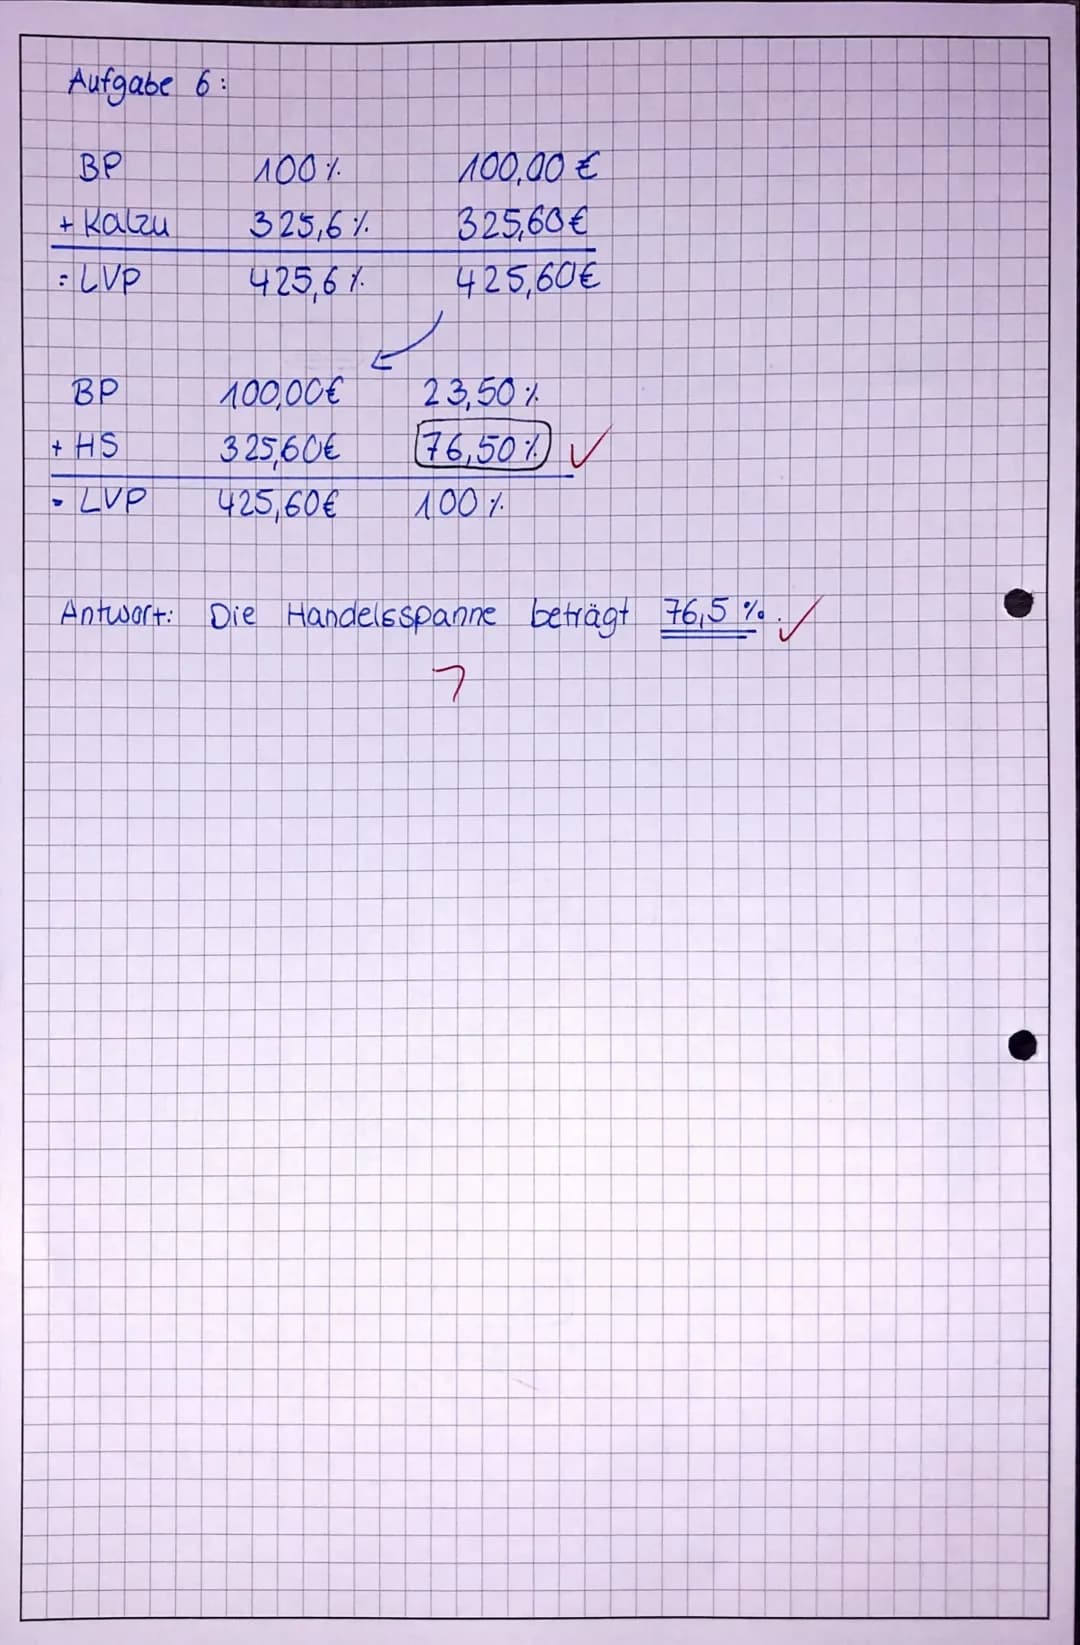 Aufgabe 6:
BP 100% 100,00 €
+ Kalzu 325,6% 325,60€
= LVP 425,6% 425,60€
BP 100,00€ 23,50%
+ HS 325,60€ 76,50% ✓
= LVP 425,60€ 100%
Antwort: Die Handelsspanne beträgt 76,5%. ✓
7